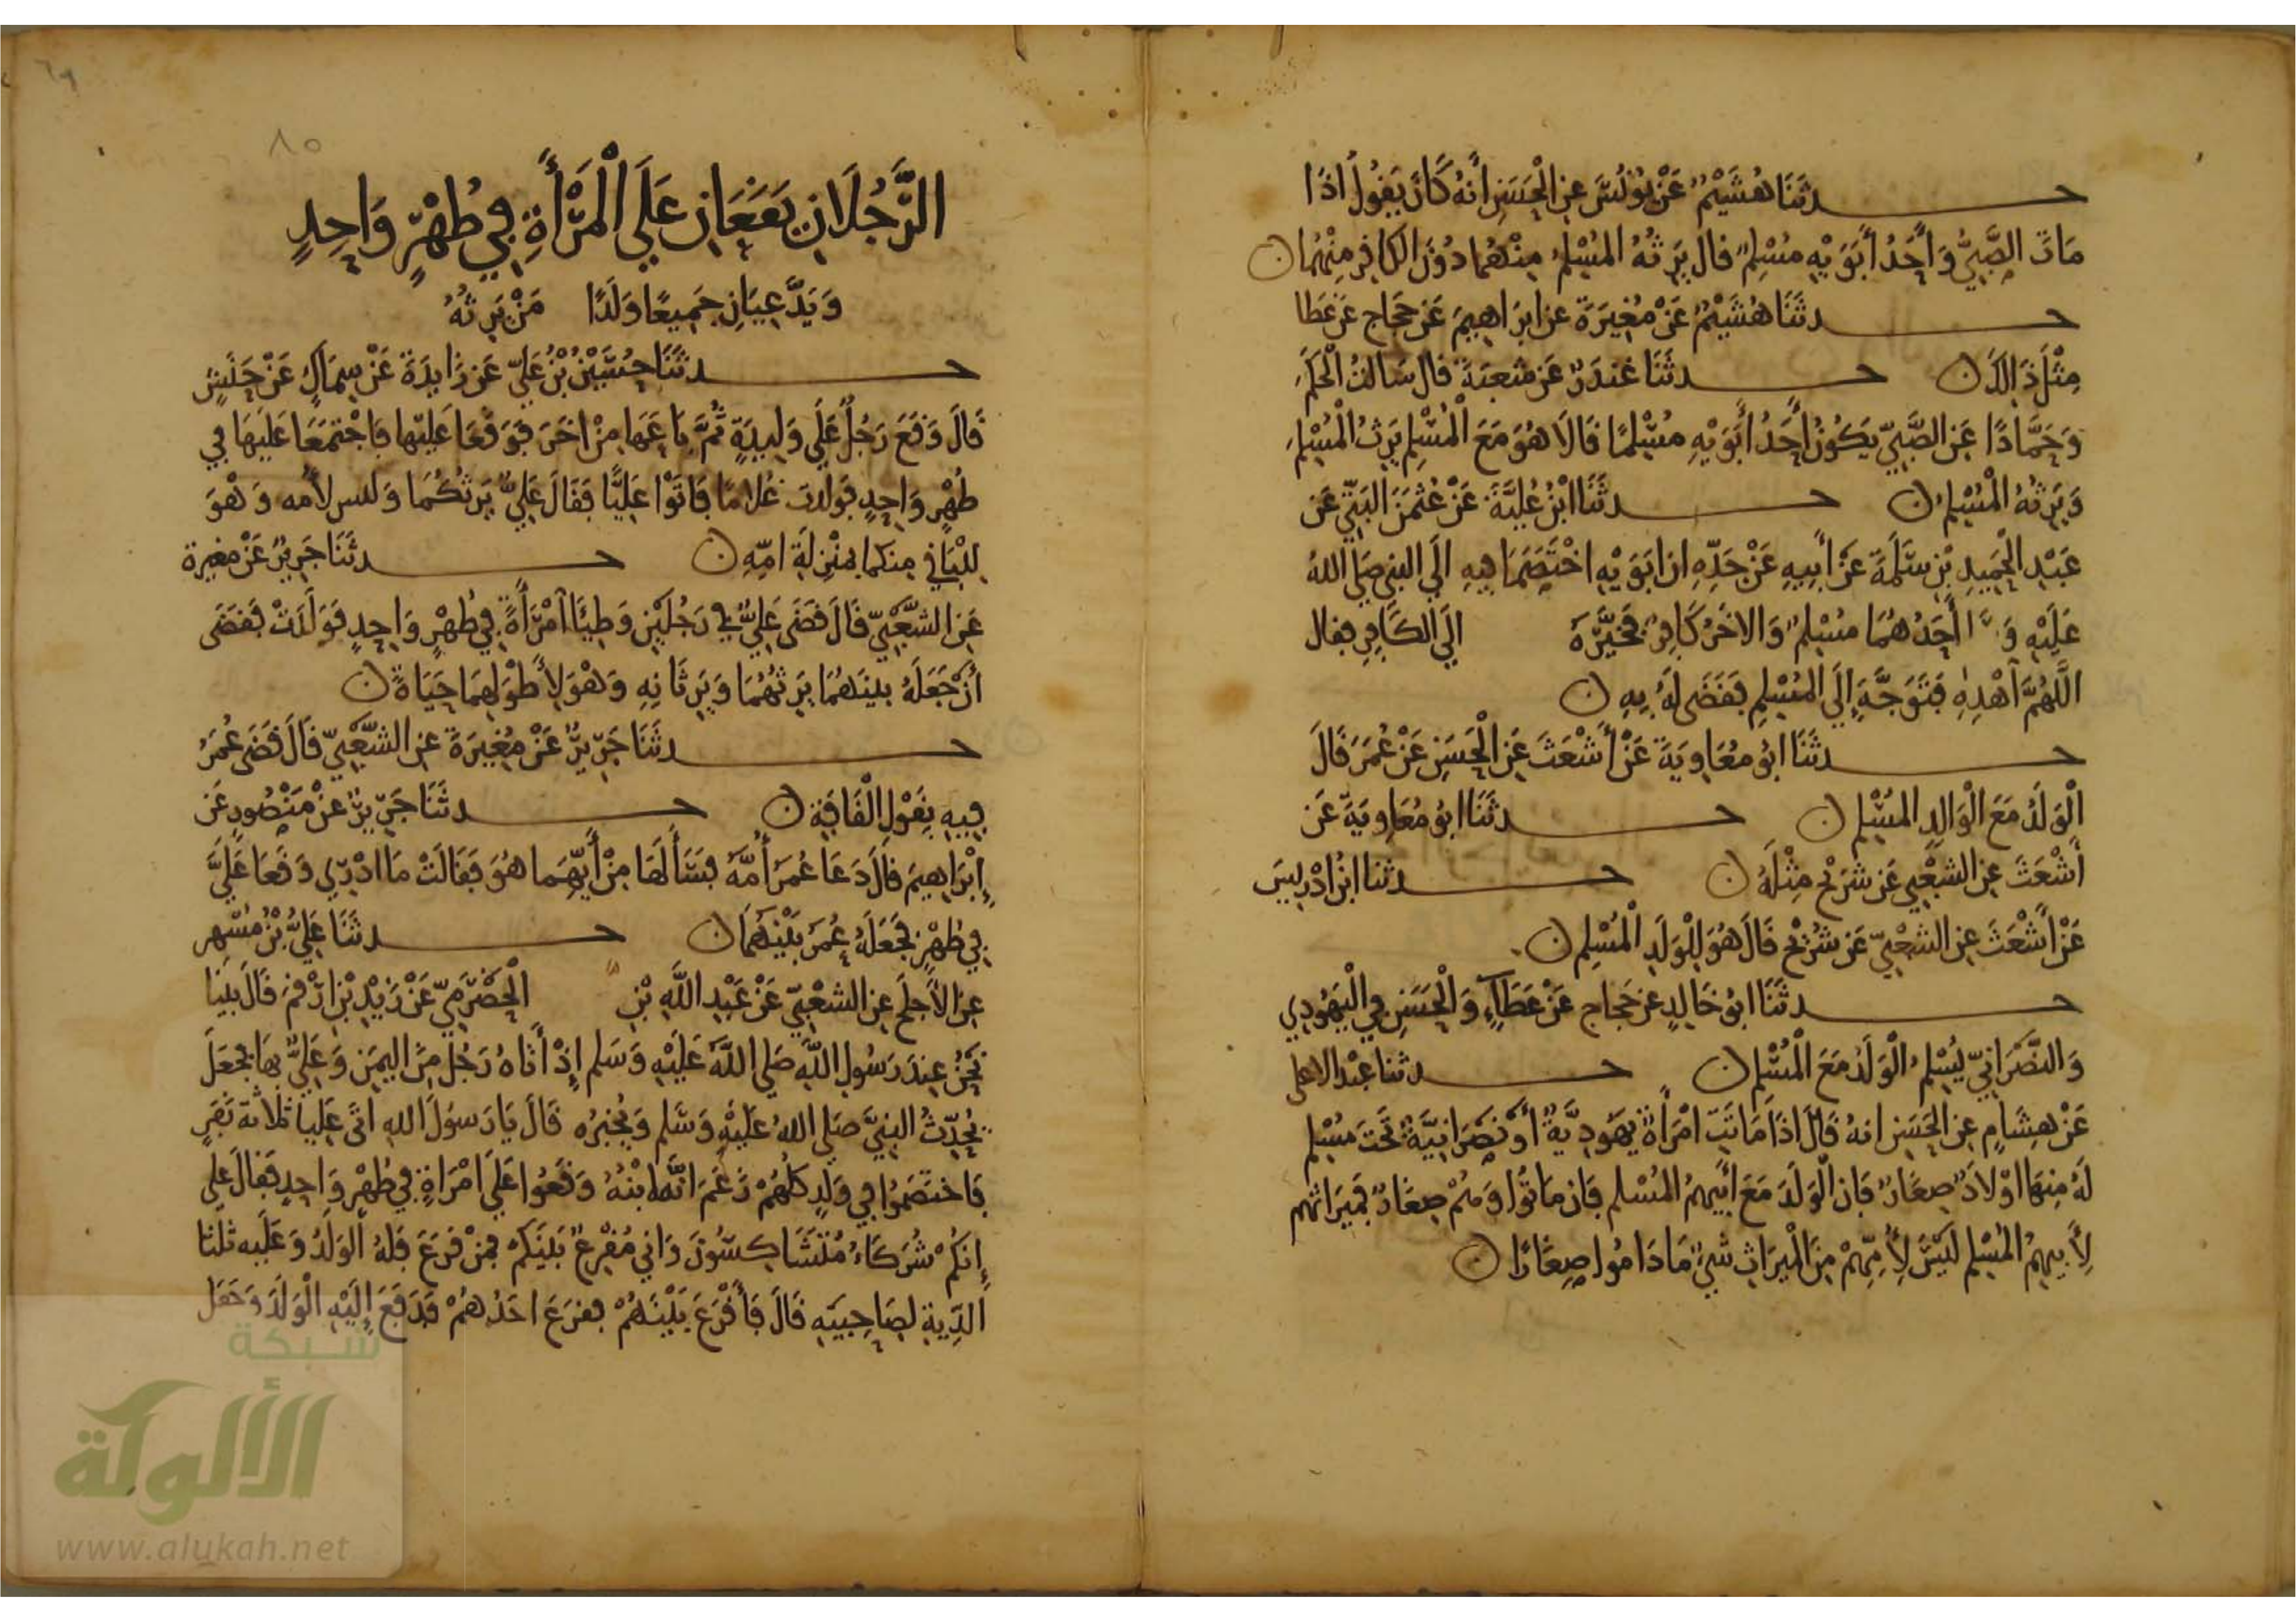 حدثنا هشيم عن يونس عن الحسن أنه كان يقول اذا
مات الصبي وأحد أبويه مسلم قال يرثه المسلم منهما دون الكافر منهما ن
حدثنا هشيم عن مغيرة عن ابراهيم عن حجاج عن عطا
مثل ذالك ن حدثنا غندر عن شعبة قال سالت الحكم
وحمادا عن الصبي يكون أحد أبويه مسلما قالا هو مع المسلم يرث المسلم
ويرثه المسلم ن حدثنا ابن علية عن عثمن البتي عن
عبد الحميد بن سلمة عن أبيه عن جده ان ابويه اختصما فيه الى النبي صلى الله
عليه أحدهما مسلم والاخر كافر فخيره الى الكافر فقال
اللهم أهده فتوجه إلى المسلم فقضى له به ن
حدثنا ابو معاوية عن أشعث عن الحسن عن عمر قال
الولد مع الوالد المسلم ن حدثنا ابو معاوية عن
أشعث عن الشعبي عن شريح مثله ن حدثنا ابن ادريس
عن أشعث عن الشعبي عن شريح قال هو للولد المسلم ن
حدثنا ابو خالد عن حجاج عن عطاء والحسن في اليهودي
والنصراني يسلم الولد مع المسلم ن حدثنا عبد الاعلى
عن هشام عن الحسن انه قال اذا ماتت امرأة يهودية أو نصرانية تحت مسلم
له منها اولاد صغار فان الولد مع أبيهم المسلم فان ماتوا وهم صغار فميراثهم
لأبيهم المسلم ليس لأمهم من الميراث شيء ما داموا صغارا ن
٨٥
الرجلان يقعان على المرأة في طهر واحد
ويدعيان جميعا ولدا من يرثه
حدثنا حسين بن علي عن زايدة عن سماك عن حنش
قال وقع رجل على وليدة ثم باعها من اخر فوقعا عليها فاجتمعا عليها في
طهر واحد فولدت غلاما فاتوا عليا فقال علي يرثكما وليس لأمه وهو
للباقي منكما بمنزلة امه ن حدثنا جرير عن مغيرة
عن الشعبي قال قضى علي في رجلين وطئا أمرأة في طهر واحد فولدت فقضى
أن جعله بينهما يرثهما ويرثانه وهو لأطولهما حياة ن
حدثنا جرير عن مغيرة عن الشعبي قال قضى عمر
فيه بقول القافة ن حدثنا جرير عن منصور عن
إبراهيم قال دعا عمر أمه فسألها من أيهما هو فقالت ما ادري وقعا علي
في طهر فجعله عمر بينهما ن حدثنا علي بن مسهر
عن الأجلح عن الشعبي عن عبد الله بن الحضرمي عن زيد بن ارقم قال بينا
نحن عند رسول الله صلى الله عليه وسلم إذ أتاه رجل من اليمن وعلي بها فجعل
يحدث النبي صلى الله عليه وسلم ويخبره قال يا رسول الله اتى عليا ثلاثة نفر
فاختصموا في ولد كلهم زعم انه ابنه وقعوا على امراة في طهر واحد فقال علي
إنكم شركاء متشاكسون واني مقرع بينكم فمن قرع فله الولد وعليه ثلثا
الدية لصاحبيه قال فأقرع بينهم فقرع احدهم فدفع إليه الولد وجعل
شبكة
الألوكة
www.alukah.net